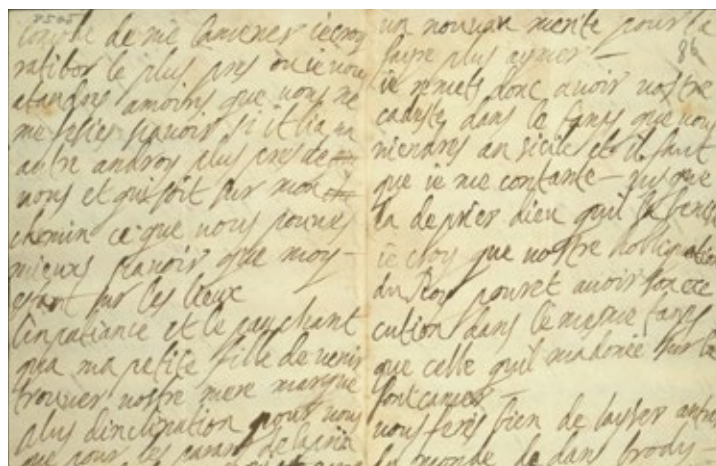 8505
comode de me lamener ie croy
ratibor le plus pres ou ie vous
atandres amoins que vous ne
me fesies scavoir si il lia un
autre androy plus pres de
vous et qui soit sur mon
chemin ce que vous pouves
mieux scavoir que moy
estant sur les lieux
linpatiance et le panchant
qua ma petite fille de venir
trouver vostre mere marque
plus dinclination pour vous
que pour les parans de la
un nouvau merite pour la
faire plus aymer
84
ie remets donc avoir vostre
cadaste dans le tamps que vous
viendres an sicile et il faut
que ie me contante jusque
la de prier dieu quil la benisse
ie croy que vostre hobligation
du Roy pouret avoir son exe
cution dans le mesme tamps
que celle quil madonée sur le
fontcaneur
vous feres bien de laysser antrer
du monde de dans brody